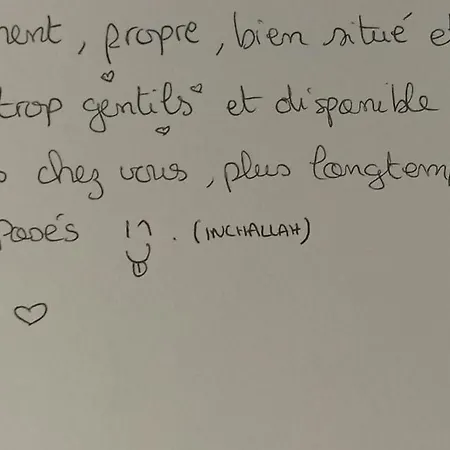 ment, propre, bien situé et
trop gentils et disponible
chez vous, plus longtemp
posés (INCHALLAH)